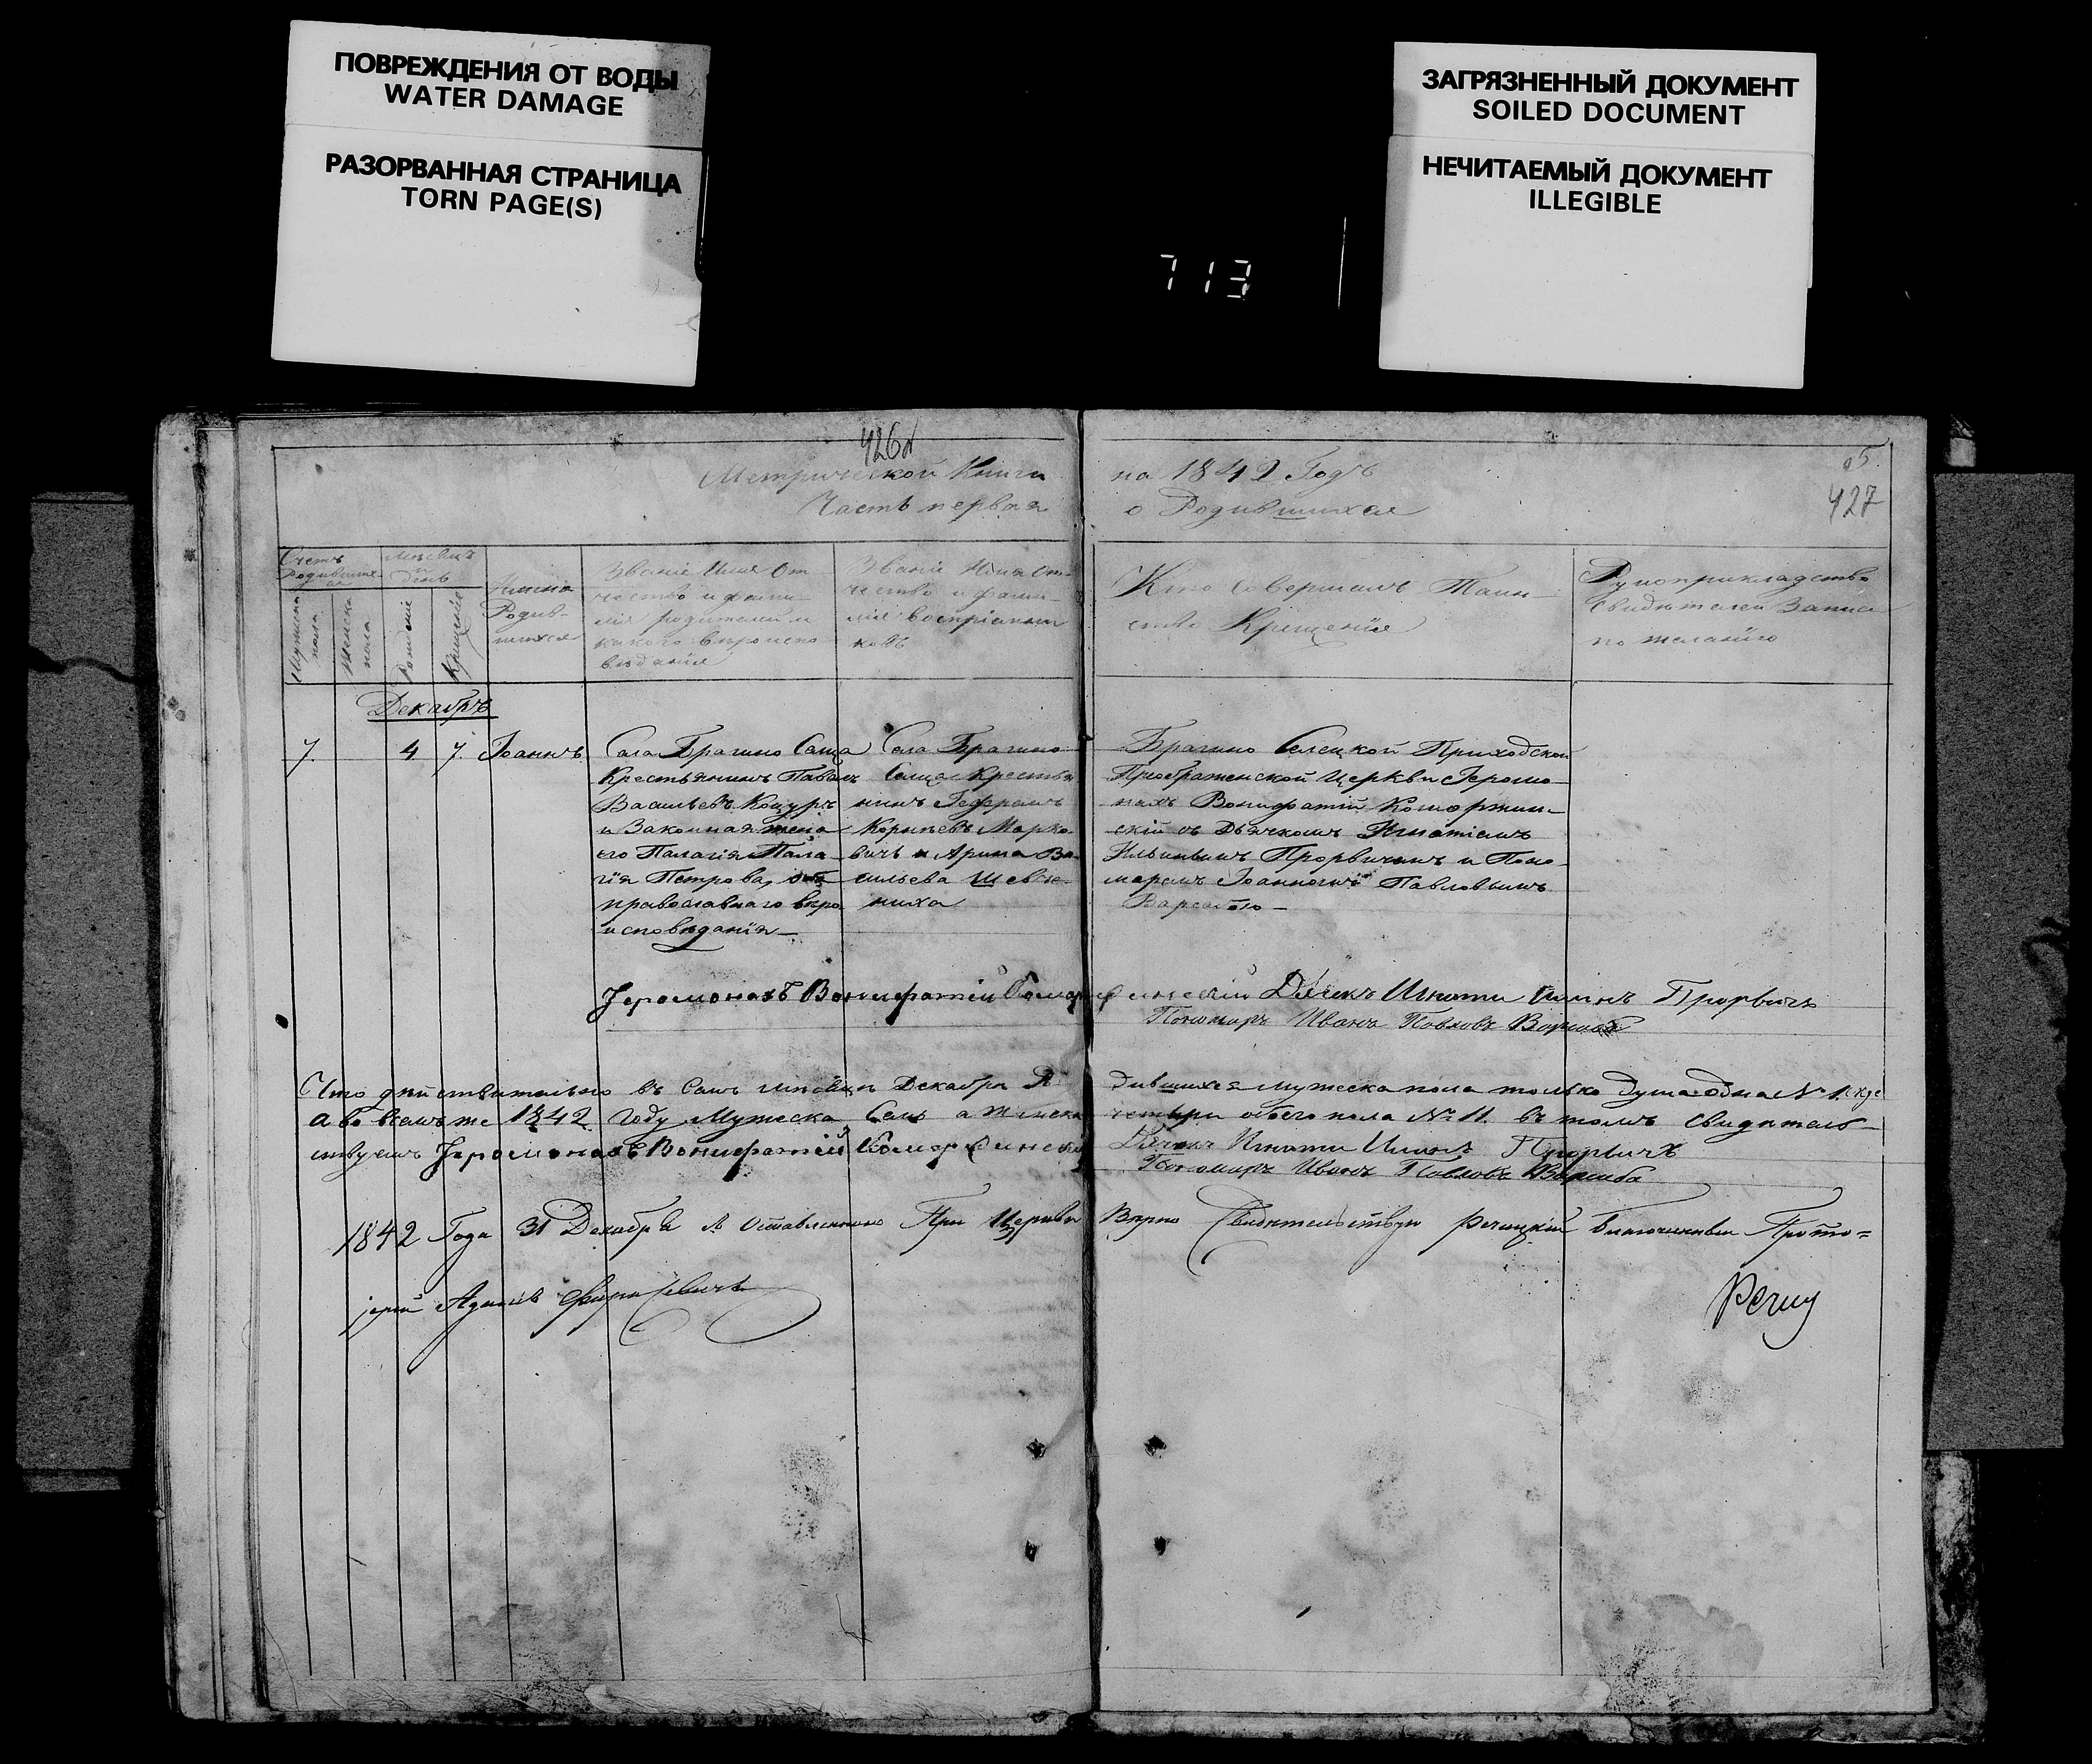 ПОВРЕЖДЕНИЯ ОТ ВОДЫ
WATER DAMAGE
РАЗОРВАННАЯ СТРАНИЦА
TORN PAGE(S)
ЗАГРЯЗНЕННЫЙ ДОКУМЕНТ
SOILED DOCUMENT
НЕЧИТАЕМЫЙ ДОКУМЕНТ
ILLEGIBLE
713
426
Метрической Книги
Часть первая
на 1842 Годъ
о Родившихся
427
Счетъ
родивших-
ся
Мужеска
пола
Женска
пола
Мѣсяцъ
и
день
Рожденiе
Крещенiе
Имена
Родив-
шихся
Званiе Имя От
чество и фами
лiя родителей и
какого вѣроиспо
вѣданiя
Званiе Имя От-
чество и фами-
лiя воспрiемни
ковъ
Кто Совершалъ Таин-
ство Крещенiя
Рукоприкладство
Свидѣтелей Записи
по желанiю
Декабрь
7.
4
7.
Iоаннъ
Села Брагино Сельца
Крестьянинъ Павелъ
Васильевъ Коцуръ
и Законная жена
его Палагiя
гiя Петрова,
православнаго вѣро
исповѣданiя
Села Брагино
Сельца Крестья
нинъ
Марко-
вичъ и Арина Ва-
сильева Шевче-
ниха
Брагино Селецкой Приходской
Преображенской Церкви Iеромо-
нахъ Вонифатiй
скiй съ Дьячкомъ Игнатiемъ
Ильинымъ Прорвичемъ и Поно-
маремъ Iоанномъ Павловымъ
Iеромонахъ Вонифатiй
Дьячекъ Игнати Илинъ Прорвичъ
Пономаръ Иванъ Павловъ
Что дѣйствительно въ Семъ мѣсяцѣ Декабрѣ Ро
дившихся мужеска пола только душа одна № 1.
а во всемъ же 1842 году Мужеска Семь а женска
четыри обоего пола № 11. въ томъ свидѣтель-
ствуемъ Iеромонахъ Вонифатiй
Дячекъ Игнати Илинъ Прорвичъ
Пономаръ Иванъ Павловъ
1842 Года 31 Декабря Оставленною При Церкви
Вѣрно Свидѣтельствую Речицкiй благочинный Прото=
iерей